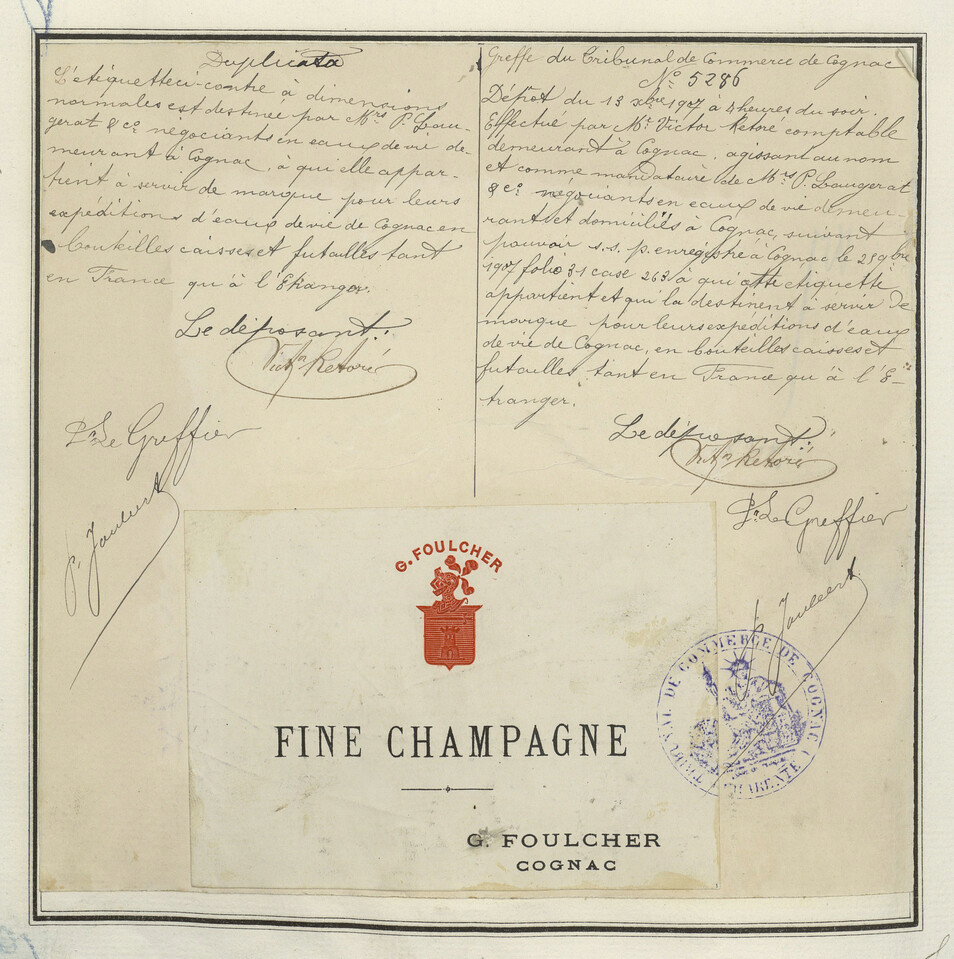 Duplicata
L'étiquette ci-contre à dimensions
normales est destinée par Mrs P. Lau-
gerat & co. négociants en eaux de vie de-
meurant à Cognac, à qui elle appar-
tient à servir de marque pour leurs
expéditions d'eaux de vie de Cognac en
bouteilles caisses et futailles tant
en France qu'à l'Etranger.
Le déposant:
Victor Retoré
Pr Le Greffier
P. Joubert
Greffe du Tribunal de Commerce de Cognac
No 5286
Dépôt du 13 xbre 1907 à 4 heures du soir.
Effectué par Mr. Victor Retoré comptable
demeurant à Cognac, agissant au nom
et comme mandataire de Mrs P. Laugerat
& co. négociants en eaux de vie demeu-
rant et domiciliés à Cognac, suivant
pouvoir s.s.p. enregistré à Cognac le 25 9bre
1907 folio 31 case 263 à qui cette etiquette
appartient et qui la destinent à servir de
marque pour leurs expéditions d'eaux
de vie de Cognac, en bouteilles caisses et
futailles tant en France qu'à l'E-
tranger.
Le déposant:
Victor Retoré
Pr Le Greffier
P. Joubert
G. FOULCHER
FINE CHAMPAGNE
G. FOULCHER
COGNAC
TRIBUNAL DE COMMERCE DE COGNAC (CHARENTE)